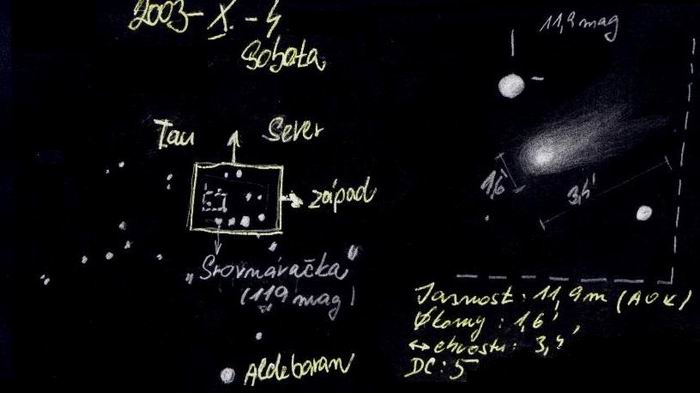 2003-X-4
Sobota
Tau
Sever
západ
„Srovnávačka"
(119 mag)
Aldebaran
11,9 mag
1,6'
3,4'
Jasnost: 11,9m (AUK)
Økomy: 1,6'
↔ chvostu: 3,4'
DC: 5